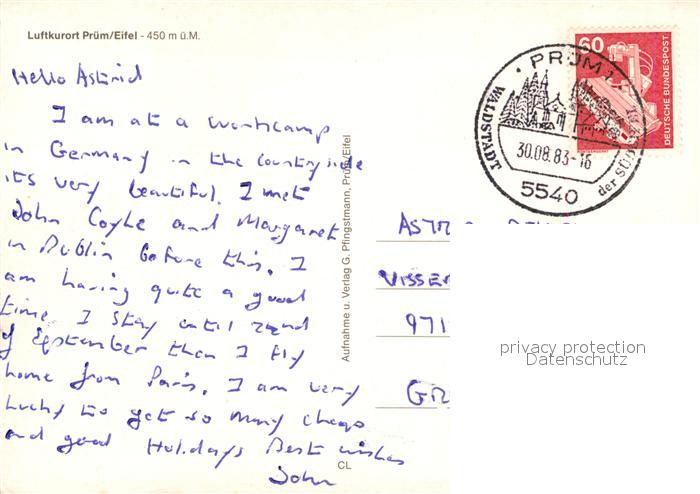 Luftkurort Prüm/Eifel - 450 m ü.M.
Hello Astrid
I am at a workcamp
in Germany in the countryside
its very beautiful. I met
John Coyle and Margaret
in Dublin before this. I
am having quite a good
time. I stay until 22nd
of September then I fly
home from Paris. I am very
lucky to get so many cheap
and good Holidays Best wishes
John
CL
Aufnahme u. Verlag G. Pfingstmann, Prüm/Eifel
60
DEUTSCHE BUNDESPOST
PRÜM 1
WALDSTADT
30.08.83-16
5540
der
VISSE
971
GR
privacy protection
Datenschutz